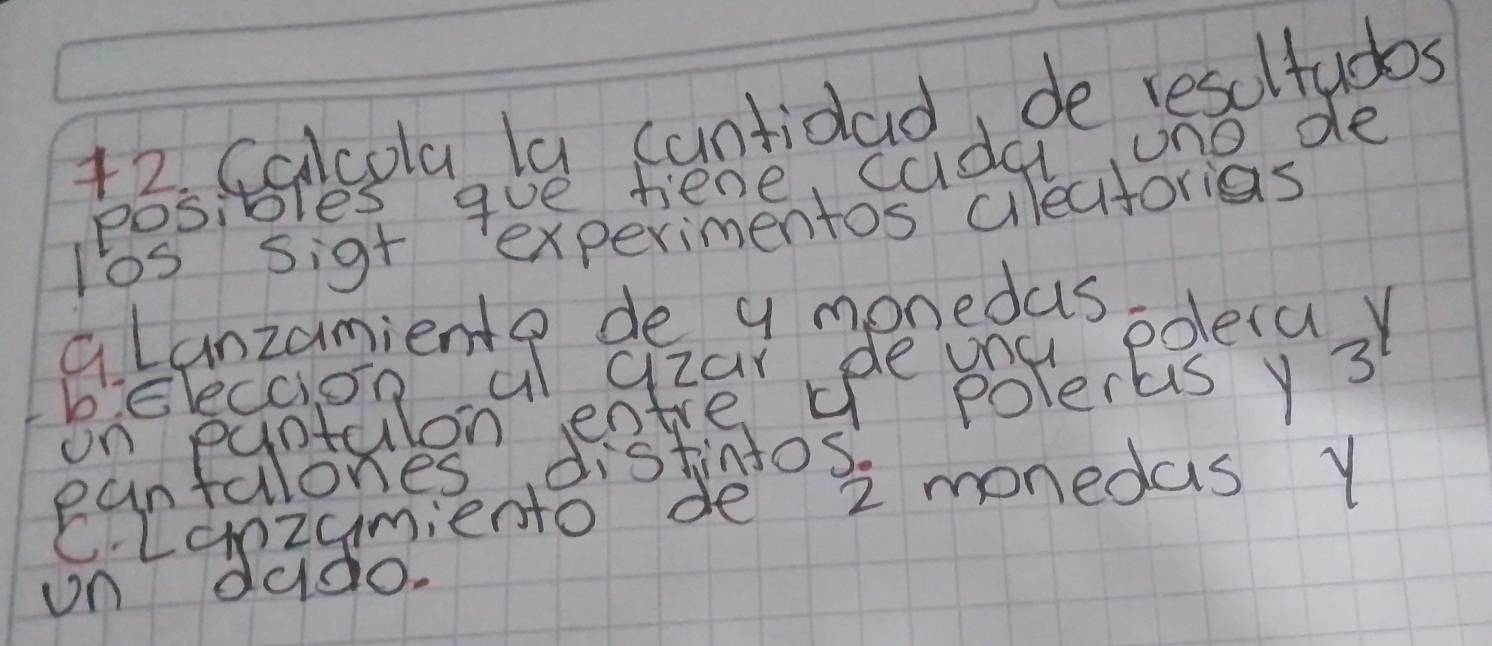 12. Calcola la cantidad, de resultados
posibles que tiene, cada, uno de
los sigt experimentos aleatorias
a. Lanzamiento de 4 monedas.
b. Eleccion al azar de una polera y
un pantalon entre 4 poleras y 3
pantalones distintos.
C. Lanzamiento de 2 monedas y
un dado.